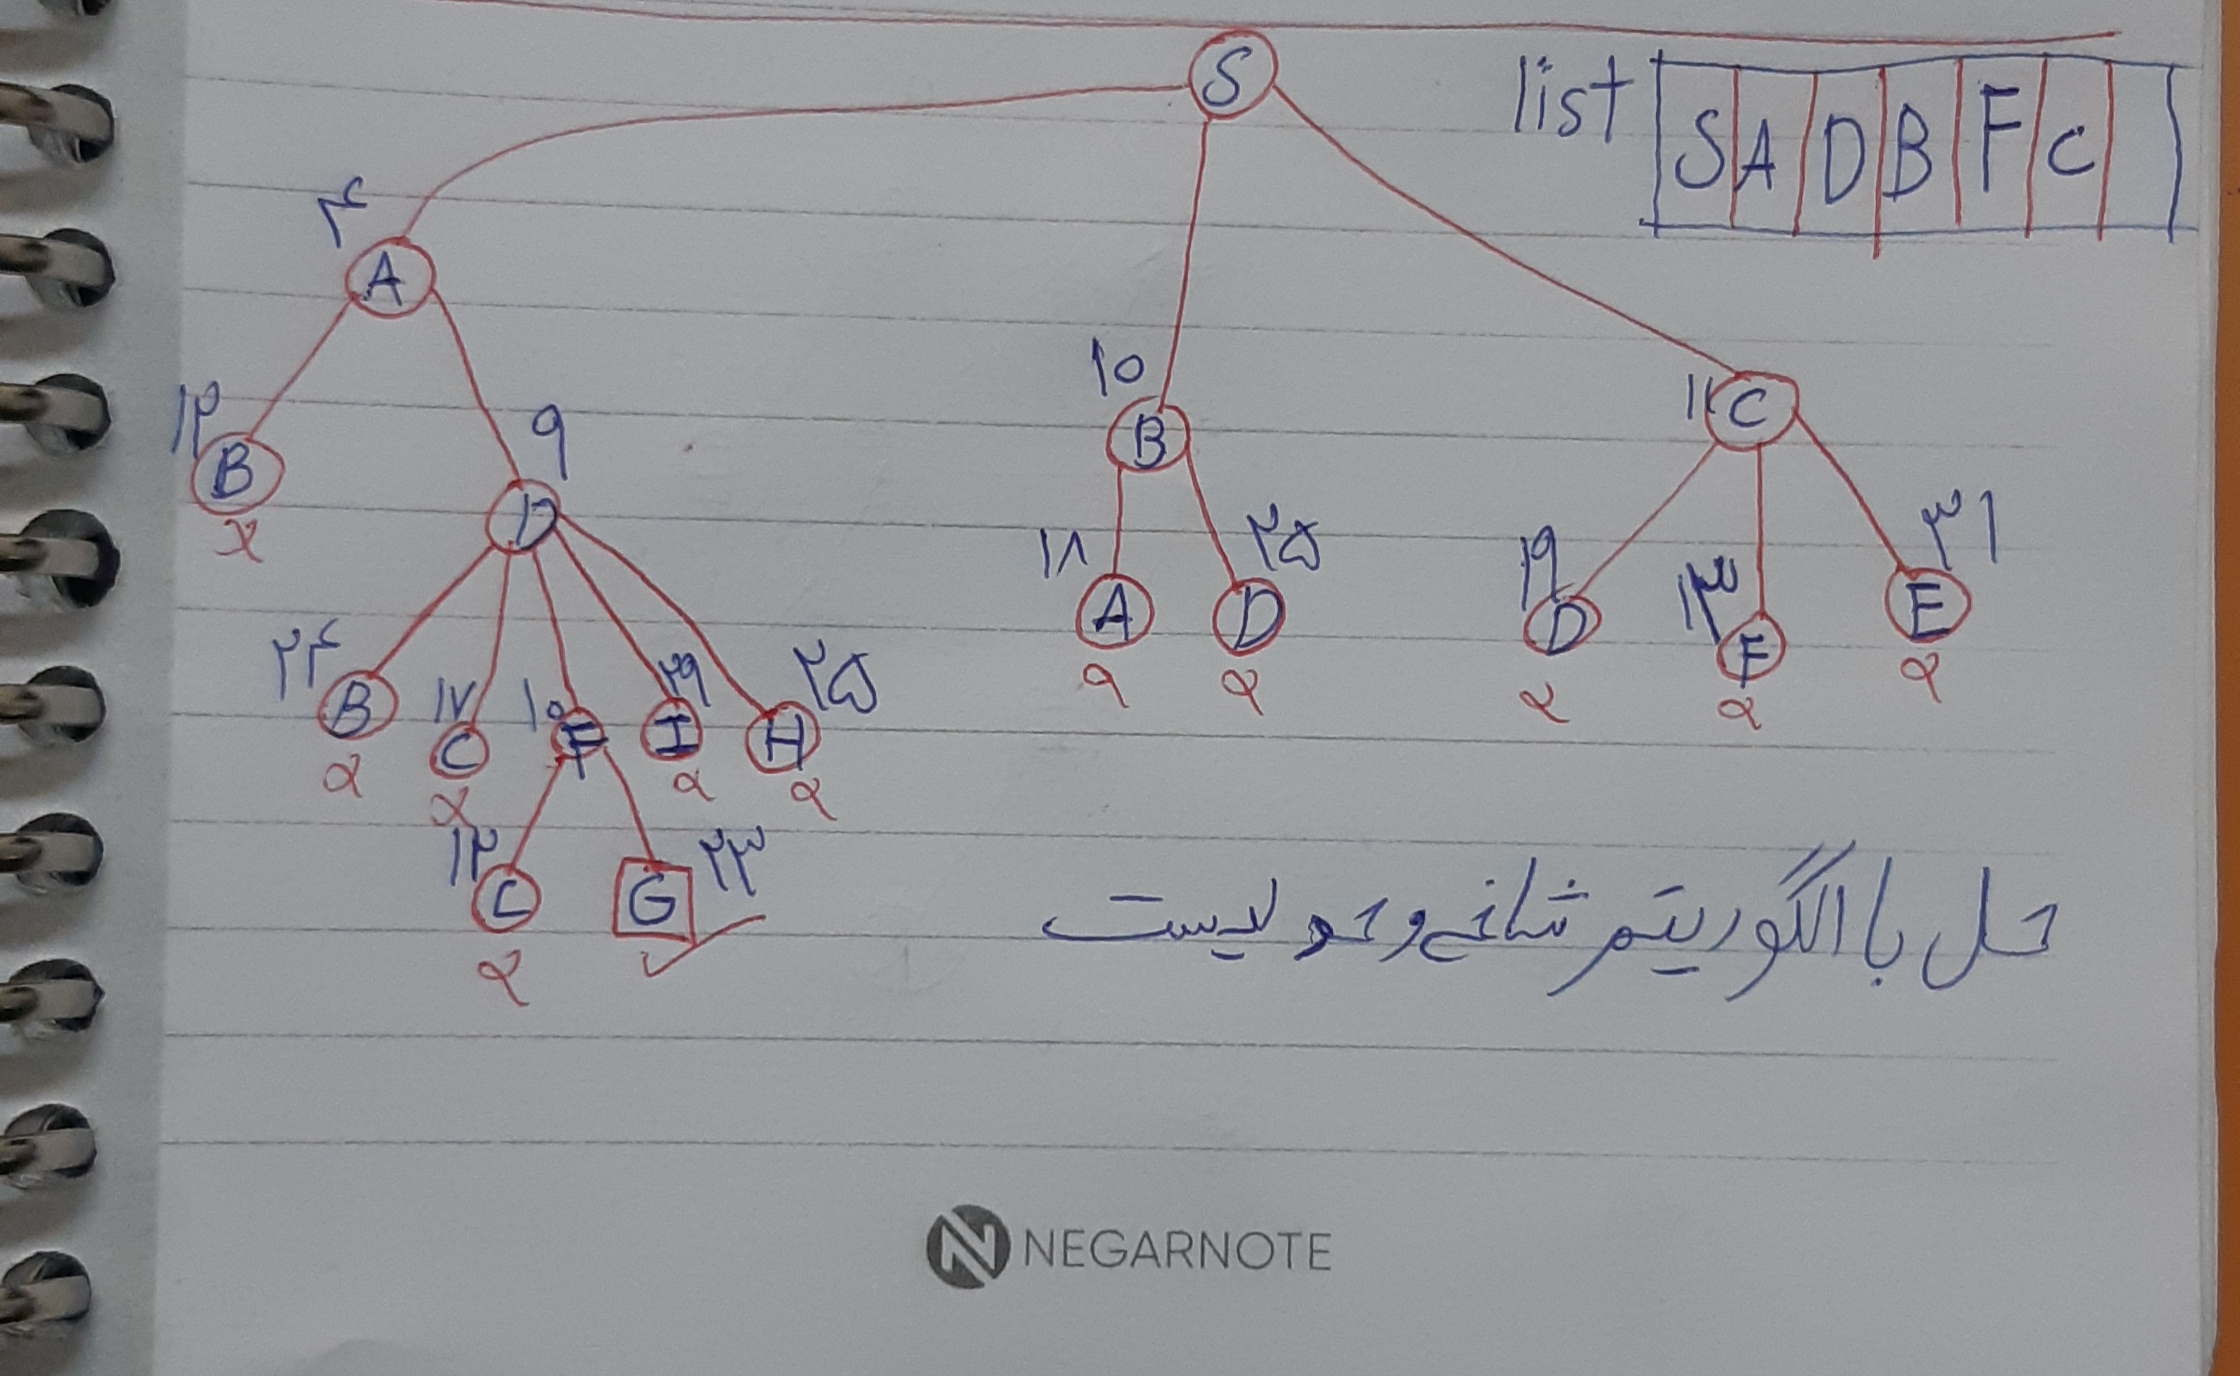 S
list S A D B F C
۴
A
۱۰
B
۱۱ C
۱۲
B
x
۹
D
۱۸
A
۲۵
D
۱۹
D
۱۳
F
۳۱
E
۲۴
B
۱۷
C
۱۰
F
۲۹
I
۲۵
H
۱۲
C
G ۲۳
حل با الگوریتم شاخه و حد و لیست
NEGARNOTE